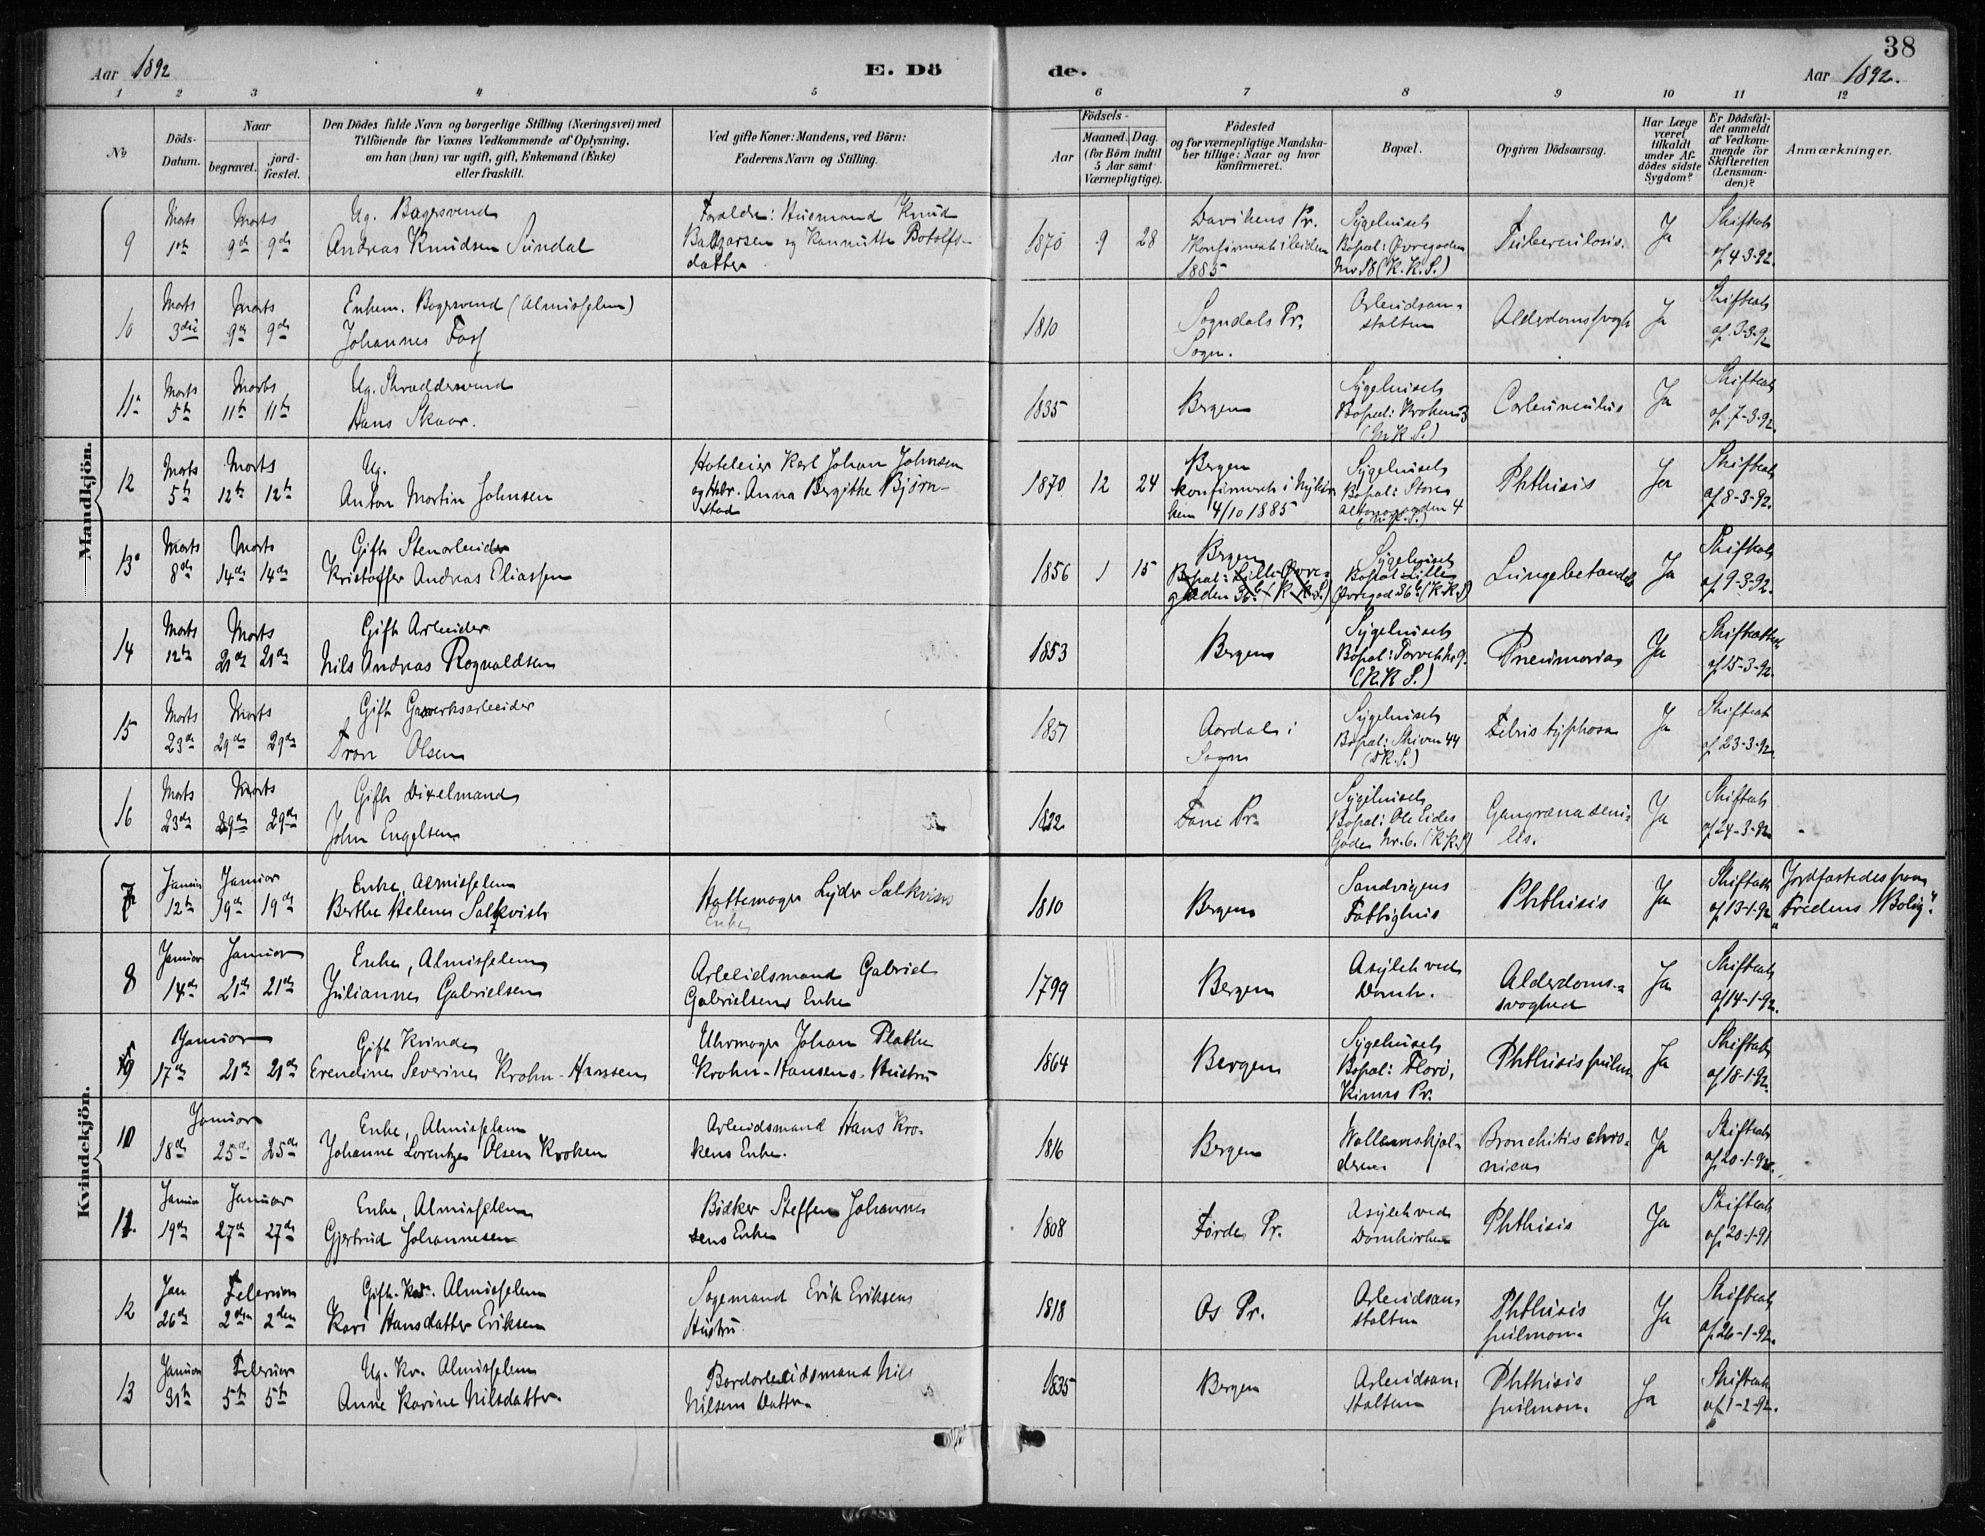 38
Aar 1892 E. Dö de. Aar 1892.
1 2 3 4 5 6 7 8 9 10 11 12
No
Döds-Datum.
Naar
begravet. jord-fæstet.
Den Dödes fulde Navn og borgerlige Stilling (Næringsvei) med
Tilföiende for Voxnes Vedkommende af Oplysning,
om han (hun) var ugift, gift, Enkemand (Enke)
eller fraskilt.
Ved gifte Koner: Mandens, ved Börn:
Faderens Navn og Stilling.
Födsels-
Aar Maaned. Dag.
(for Börn indtil
5 Aar samt
Værnepligtige).
Födested
og for værnepligtige Mandska-
ber tillige: Naar og hvor
konfirmeret.
Bopæl.
Opgiven Dödsaarsag.
Har Læge
været
tilkaldt
under Af-
dödes sidste
Sygdom?
Er Dödsfal-
det anmeldt
af Vedkom-
mende for
Skifteretten
(Lensman-
den)?
Anmærkninger.
Mandkjön.
9 Marts 1ste Marts 9de 9de
Ug. Bagersvend
Andreas Knudsen Sundal
Forældre: Husmand Knud
Baltzarsen og Bototfs-
datter
1870 9 28
Davikens Pr.
1885
Sygehuset
Bopæl: Øvregaden
(K.K.S.)
Tuberculosis.
Ja
Skifteat
af 4-3-92.
10 Marts 3die Marts 9de 9de
Enkem. Bagersvend (Almisselem)
Johannes Foss
1810
Sogndals Pr.
Sogn.
Arbeidsan-
stalten
Alderdomssvagh
Ja
Skifteat
af 3-3-92
11 Marts 5te Marts 11te 11te
Ug. Skræddersvend
Hans Skaar.
1835
Bergen
Sygehuset
Bopæl: Kroken 3
(M.K.S.)
Carbunculus
Ja
Skifteat
af 7-3-92.
12 Marts 5te Marts 12te 12te
Ug.
Anton Martin Johnsen
Hoteleier Karl Johan Johnsen
og Hstr. Anna Bergithe Bjørn-
stad
1870 12 24
Bergen
konfirmeret i Nykir
ken 4/10 1885
Sygehuset
Bopæl: Store
4
Phthisis
Ja
Skifteat
af 8-3-92.
13 Marts 8de Marts 14de 14de
Gift Stenarbeider
Kristoffer Andreas Eliassen
1856 1 15
Bergen
Bopæl: Lille Øvre-
gaden 36b (K.K.S.)
Sygehuset
Bopæl Lille
Øvregad 36b. (K.K.S)
Lungebetændels
Ja
Skifteat
af 9-3-92.
14 Marts 12te Marts 21de 21de
Gift Arbeider
Nils Andreas Rognaldsen
1853
Bergen
Sygehuset
Bopæl: Torvet No 9.
(K.K.S.)
Pneumonia
Ja
Skifteattest
af 15-3-92.
15 Marts 23de Marts 29de 29de
Gift Gasverksarbeider
Tron Olsen
1857
Aardal i
Sogn
Sygehuset
Bopæl: Skiven 44
(D.K.S.)
Febris typhosa
Ja
Skifteat
af 23-3-92.
16 Marts 23de Marts 29de 29de
Gift Dixelmand
John Engelsen
1822
Fane Pr.
Sygehuset
Bopæl: Ole Eides
Gade Nr. 6. (K.K.S)
Gangræna seni-
lis.
Ja
Skifteat
af 24-3-92
Kvindekjön.
7 Januar 12te Januar 19de 19de
Enke, Almisselem
Berthe Helene Salkvist
Hattemager Lyder Salkvists
Enke
1810
Bergen
Sandvigens
Fattighus
Phthisis
Ja
Skifteatt
af 13-1-92
Jordfæstedes fra
"Fredens Bolig".
8 Januar 14de Januar 21de 21de
Enke, Almisselem
Julianne Gabrielsen
Arbeidsmand Gabriel
Gabrielsens Enke
1799
Bergen
Asylet ved
Domk.
Alderdoms-
svaghed
Ja
Skifteat
af 14-1-92.
9 Januar 17de 21de 21de
Gift Kvinde
Erendine Severine Krohn-Hansen
Uhrmager Johan Plathe
Krohn-Hansens Hustru
1864
Bergen
Sygehuset
Bopæl: Florø,
Kinns Pr.
Phthisis pulm
Ja
Skifteat
af 18-1-92.
10 Januar 18de 25de 25de
Enke, Almisselem
Johanne Lorentze Olsen Kroken
Arbeidsmand Hans Kro-
kens Enke.
1816
Bergen
Bronchitis chro-
nica
Ja
Skifteat
af 20-1-92.
11. Januar 19de Januar 27de 27de
Enke, Almisselem
Gjertrud Johannesen
Bødker Steffen Johanne
sens Enke
1808
Førde Pr.
Asylet ved
Domkirken
Phthisis
Ja
Skifteat
af 20-1-91
12 Jan 26de Februar 2den 2den
Gift Kv. Almisselem
Kari Hansdatter Eriksen
Sagemand Erik Eriksens
Hustru
1818
Os Pr.
Arbeidsan-
stalten
Phthisis
pulmon.
Ja
Skifteat
af 26-1-92.
13 Januar 31te Februar 5te 5te
Ug. Kv. Almisselem
Anne Karine Nilsdatter
Bordarbeidsmand Nils
Nilsens Datter
1835
Bergen
Arbeidsan-
stalten
Phthisis
pulmon.
Ja
Skifteat
af 1-2-92.